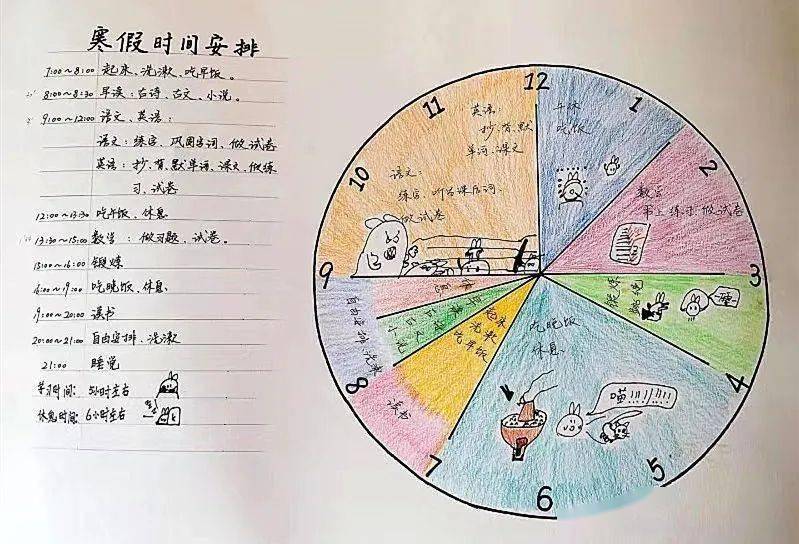 寒假时间安排
7:00~8:00 起来、洗漱、吃早饭。
8:00~8:30 早读:古诗、古文、小说。
9:00~12:00 语文、英语:
语文:练字、巩固字词、做试卷
英语:抄、背、默单词、课文、做练
习、试卷
12:00~13:30 吃午饭、休息
13:30~15:00 数学:做习题、试卷。
15:00~16:00 锻炼
16:00~19:00 吃晚饭、休息
19:00~20:00 读书
20:00~21:00 自由安排、洗漱
21:00 睡觉
学习时间: 5小时左右
休息时间: 6小时左右
12
11
1
10
2
9
3
8
4
7
5
6
英语:
抄、背、默
单词、课文
语文:
练字、听写课后词、
做试卷
午休
吃饭
数学
练习、做试卷
锻炼
吃晚饭
休息
起来
洗漱
吃早饭
早读
古诗
古文
小说
读书
自由安排、洗漱
喵